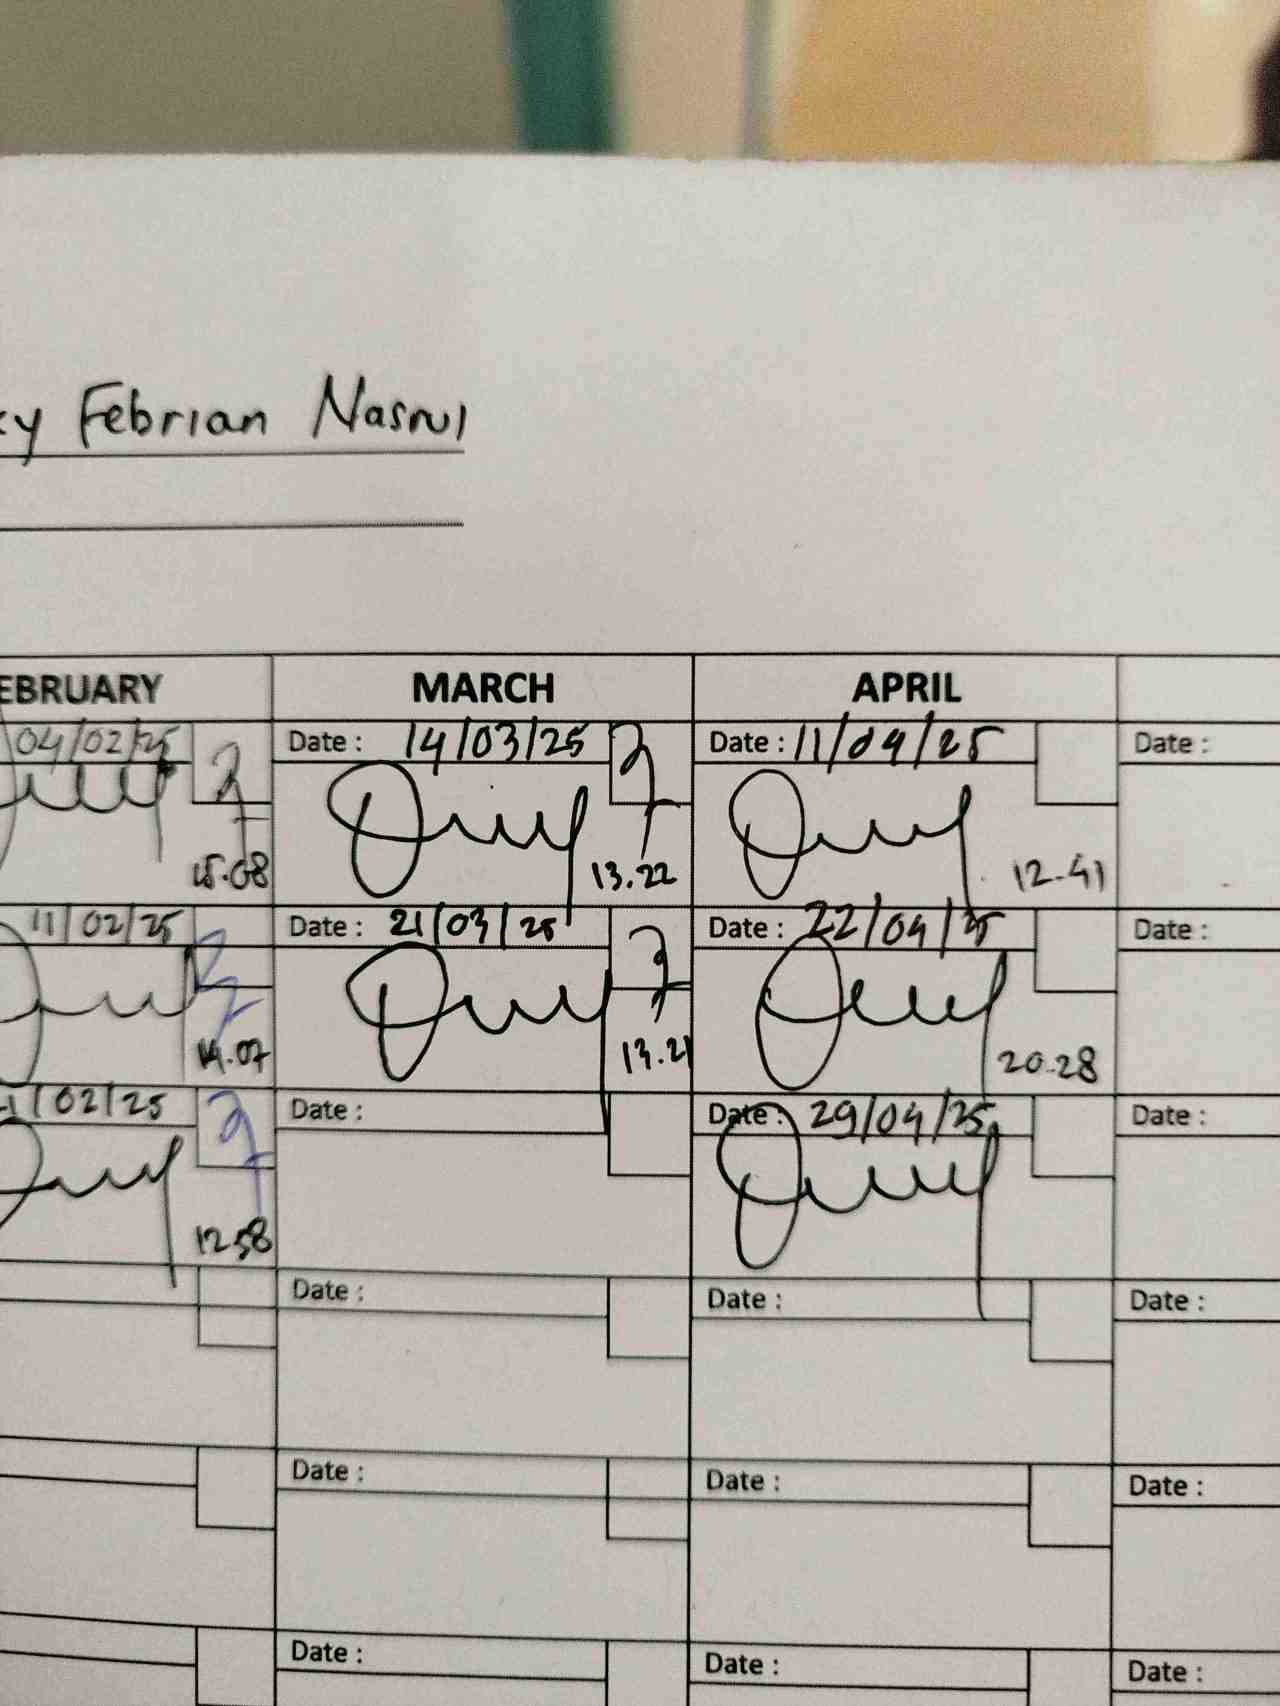 Febrian Nasrul
EBRUARY MARCH APRIL
04/02/25 Date : 14/03/25 Date : 11/04/25 Date :
15.08 13.22 12.41
11/02/25 Date : 21/03/25 Date : 22/04/25 Date :
14.07 13.21 20.28
1/02/25 Date : Date : 29/04/25 Date :
12.58
Date : Date : Date :
Date : Date : Date :
Date : Date : Date :